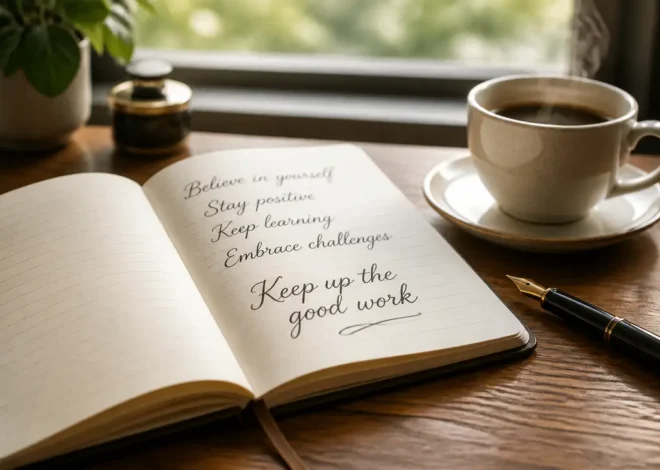 Believe in yourself
Stay positive
Keep learning
Embrace challenges
Keep up the
good work